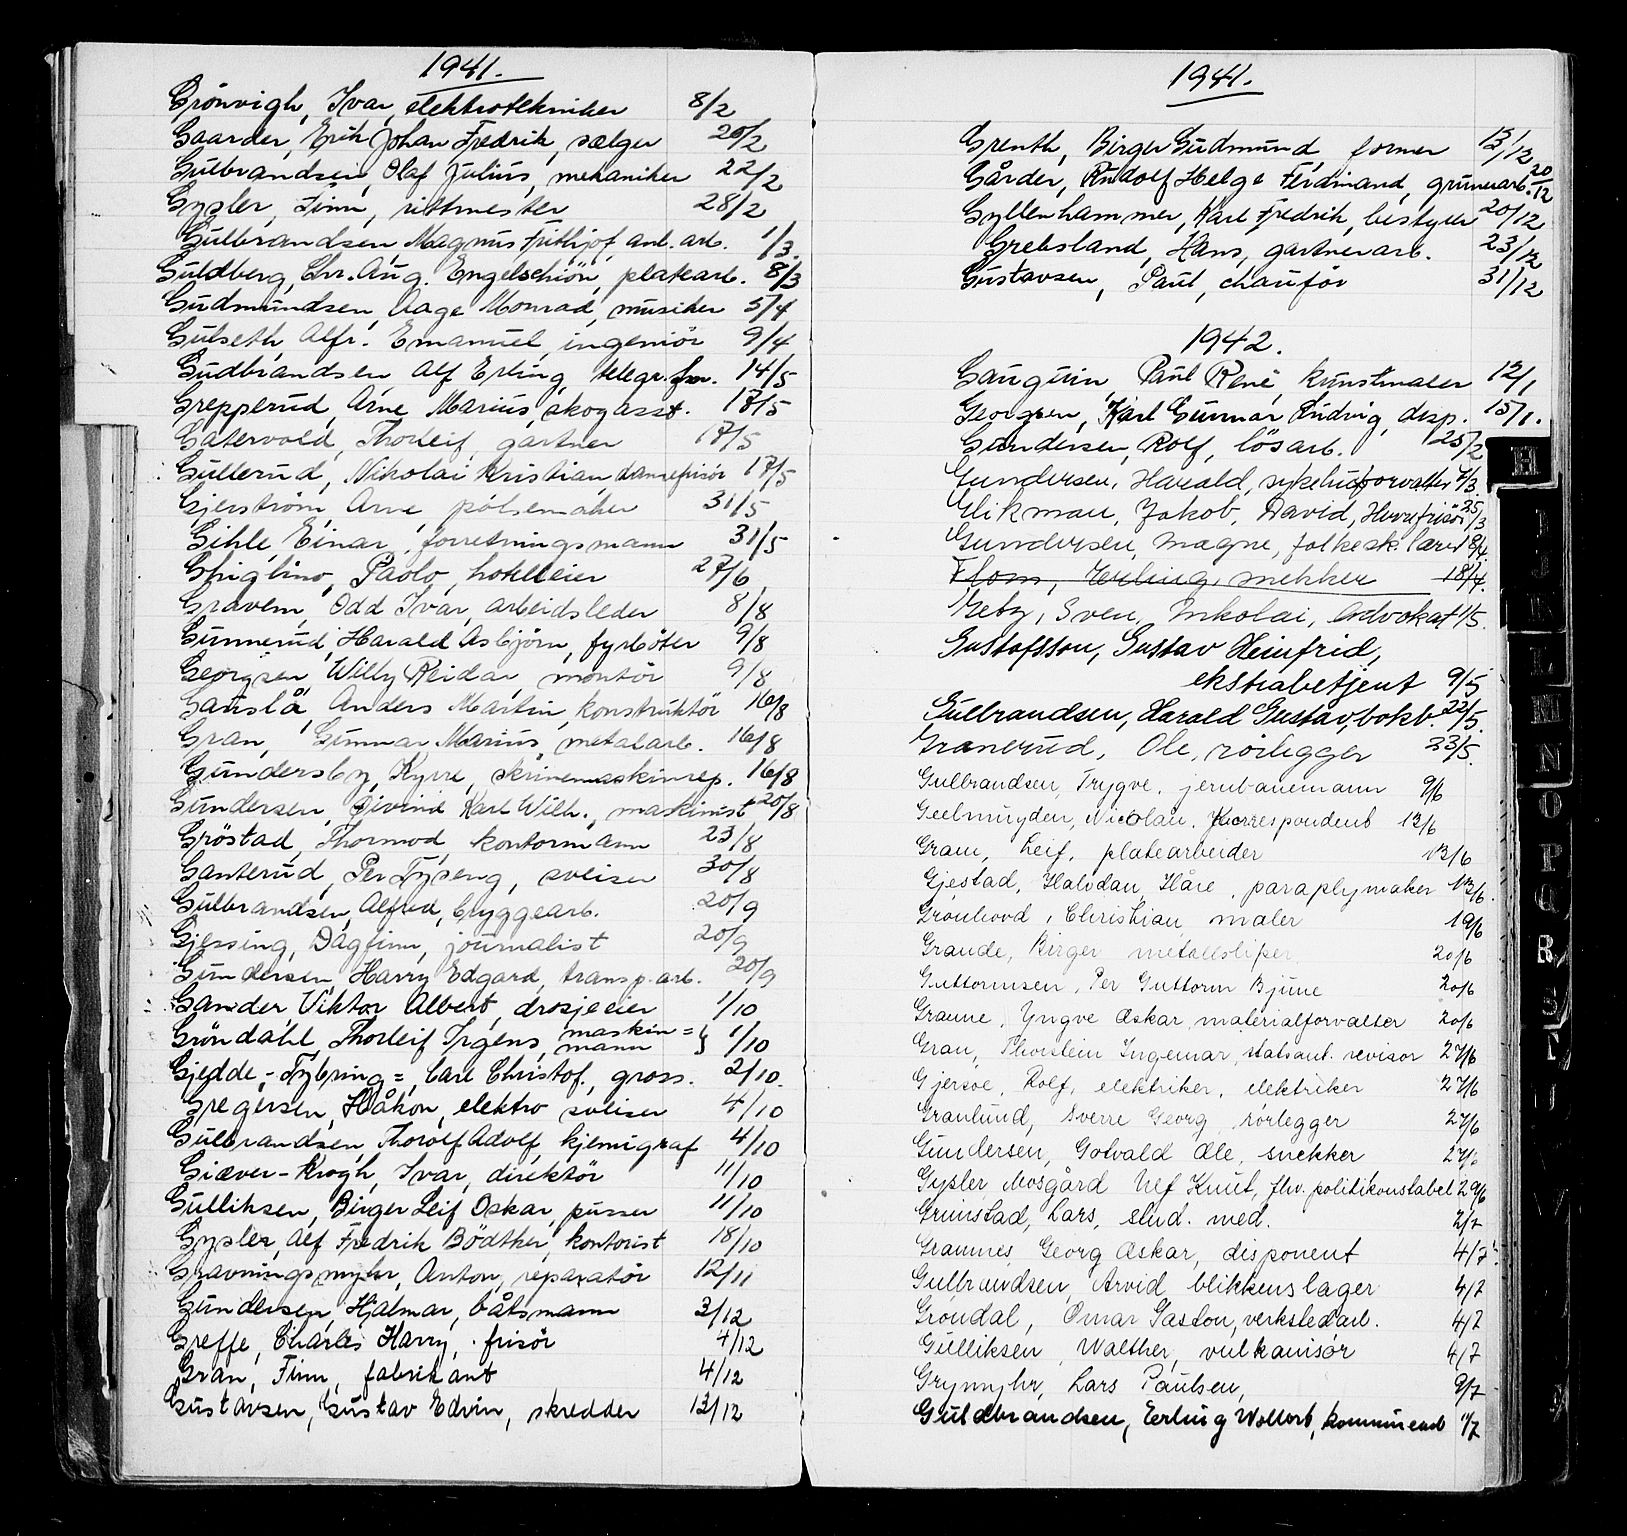 1941.
Grönvigh, Ivar, elektrotekniker 8/2
Gaarder, Erik Johan Fredrik, sælger 20/2
Gulbrandsen, Olaf Julius, mekaniker 22/2
Gysler, Finn, rittmester 28/2
Gulbrandsen Magnus Frithjof, anl. arb. 1/3.
Guldberg, Chr. Aug. Engelschiön, platearb. 8/3
Gudmundsen, Aage Monrad, musiker 5/4
Gulseth Alfr. Emanuel, ingeniör 9/4
Gudbrandsen, Alf Erling, telegr. 14/5
Grepperud, Arne Marius, skogasst. 17/5
Gatervold, Thorleif, gartner 17/5
Gullerud, Nikolai Kristian, damefrisör 17/5
Gjerström, Arne, pölsemaker 31/5
Gihle, Einar, forretningsmann 31/5
Ghiglino, Paolo, hotelleier 27/6
Gravem, Odd Ivar, arbeidsleder 8/8
Gunnerud, Harald Asbjörn, fyrböter 9/8
Georgsen, Willy Reidar, montör 9/8
Gauslå, Anders Martin, konstruktör 16/8
Gran, Gunnar Marius, metalarb. 16/8
Gundersby, Kyrre, skrivemaskinrep. 16/8
Gundersen, Öivind Karl Wilh., maskinist 20/8
Gröstad, Thormod, kontormann 23/8
Ganterud, Per Fyseng, sveiser 30/8
Gulbrandsen, Alfred, bryggearb. 20/9
Gjessing, Dagfinn, journalist 20/9
Gundersen, Harry Edgard, transp. arb. 20/9
Gander Viktor Albert, drosjeeier 1/10
Gröndahl, Thorleif Irgens, maskin=mann } 1/10
Gjedde,- Fybring=, Carl Christof., gross. 2/10.
Gregersen, Håkon, elektro sveiser 4/10
Gulbrandsen, Thorolf Adolf, kjemigraf 4/10
Giæver-Krogh, Ivar, direktör 11/10
Gulliksen, Birger Leif Oskar, pusser 11/10
Gysler, Alf Fredrik Bödtker, kontorist 18/10
Gravningsmyhr, Anton, reparatör 12/11
Gundersen, Hjalmar, båtsmann 3/12
Greffe, Charles Harry, frisör 4/12
Gran, Finn, fabrikant 4/12
Gustavsen, Gustav Edvin, skredder 13/12
1941.
Grenth, Birger Gudmund, former 13/12
Gårder, Rudolf Helge Ferdinand, gruvearb. 20/12
Gyllenhammer, Karl Fredrik, bestyrer 20/12
Grebsland, Hans, gartnerarb. 23/12
Gustavsen, Paul, chauför 31/12
1942.
Gauguin, Paul René, kunstmaler 12/1
Georgsen, Karl Gunnar Ludvig, disp. 15/1.
Gundersen, Rolf, lösarb. 25/2
Gundersen, Harald, sykehusforvalter 7/3.
Glikman, Jakob, David, Herrefrisör 25/3
Gundersen, Magne, folkesk. lærer 18/4.
Flom, Erling mekker 18/4.
Getz, Sven, Nikolai, Advokat 1/5.
Gustafsson, Gustav Heinfrid,
ekstrabetjent 9/5
Gulbrandsen, Harald Gustav, bokb. 22/5.
Granerud, Ole, rörlegger 23/5.
Gulbrandsen, Trygve, jernbanemann 9/6
Geelmuyden, Nicolai, Korrespondent 13/6
Gram, Leif, platearbeider 13/6
Gjestad, Halvdan Håre, paraplymaker 13/6.
Grönhovd, Christian, maler 19/6
Grande, Birger metallsliper 20/6
Guttormsen, Per Guttorm Bjune 20/6
Granne, Yngve Oskar, materialforvalter 20/6
Gran, Thorstein Ingemar, statsaut. revisor 27/6
Gjersøe, Rolf, elektriker, elektriker 27/6
Granlund, Sverre Georg, rörlegger 27/6
Gundersen, Gotvald Ole, snekker 27/6
Gysler Mosgård Ulf Knut, fhv. politikonstabel 29/6
Grimstad, Lars, stud. med. 2/7
Gramnes, Georg Oskar, disponent 4/7.
Gulbrandsen, Arvid, blikkenslager 4/7
Grondal, Omar Gaston, verkstedarb. 4/7
Gulliksen, Walther, vulkanisør 4/7
Grymyhr, Lars Paulsen, 9/7
Guldbrandsen, Erling Wollert, 11/7
H
I
J
K
L
M
N
O
P
Q
R
S
T
U
V